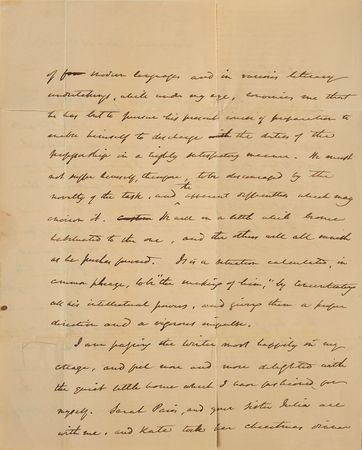 of modern languages and in various literary
undertakings, while under my eye, convinces me that
he has but to pursue his present course of preparation to
enable himself to discharge the duties of the
professorship in a highly satisfactory manner. He must
not suffer himself, therefore, to be discouraged by the
novelty of the task, and the apparent difficulties which may
environ it. He will in a little while become
habituated to the one, and the others will all vanish
as he pushes forward. It is a situation calculated, in
common phrase, to be "the making of him," by concentrating
all his intellectual powers, and giving them a proper
direction and a vigorous impulse.
I am passing the winter most happily in my
cottage, and feel more and more delighted with
the quiet little home which I have fashioned for
myself. Sarah Paris, and your sister Julia are
with me, and Kate took her christmas dinner